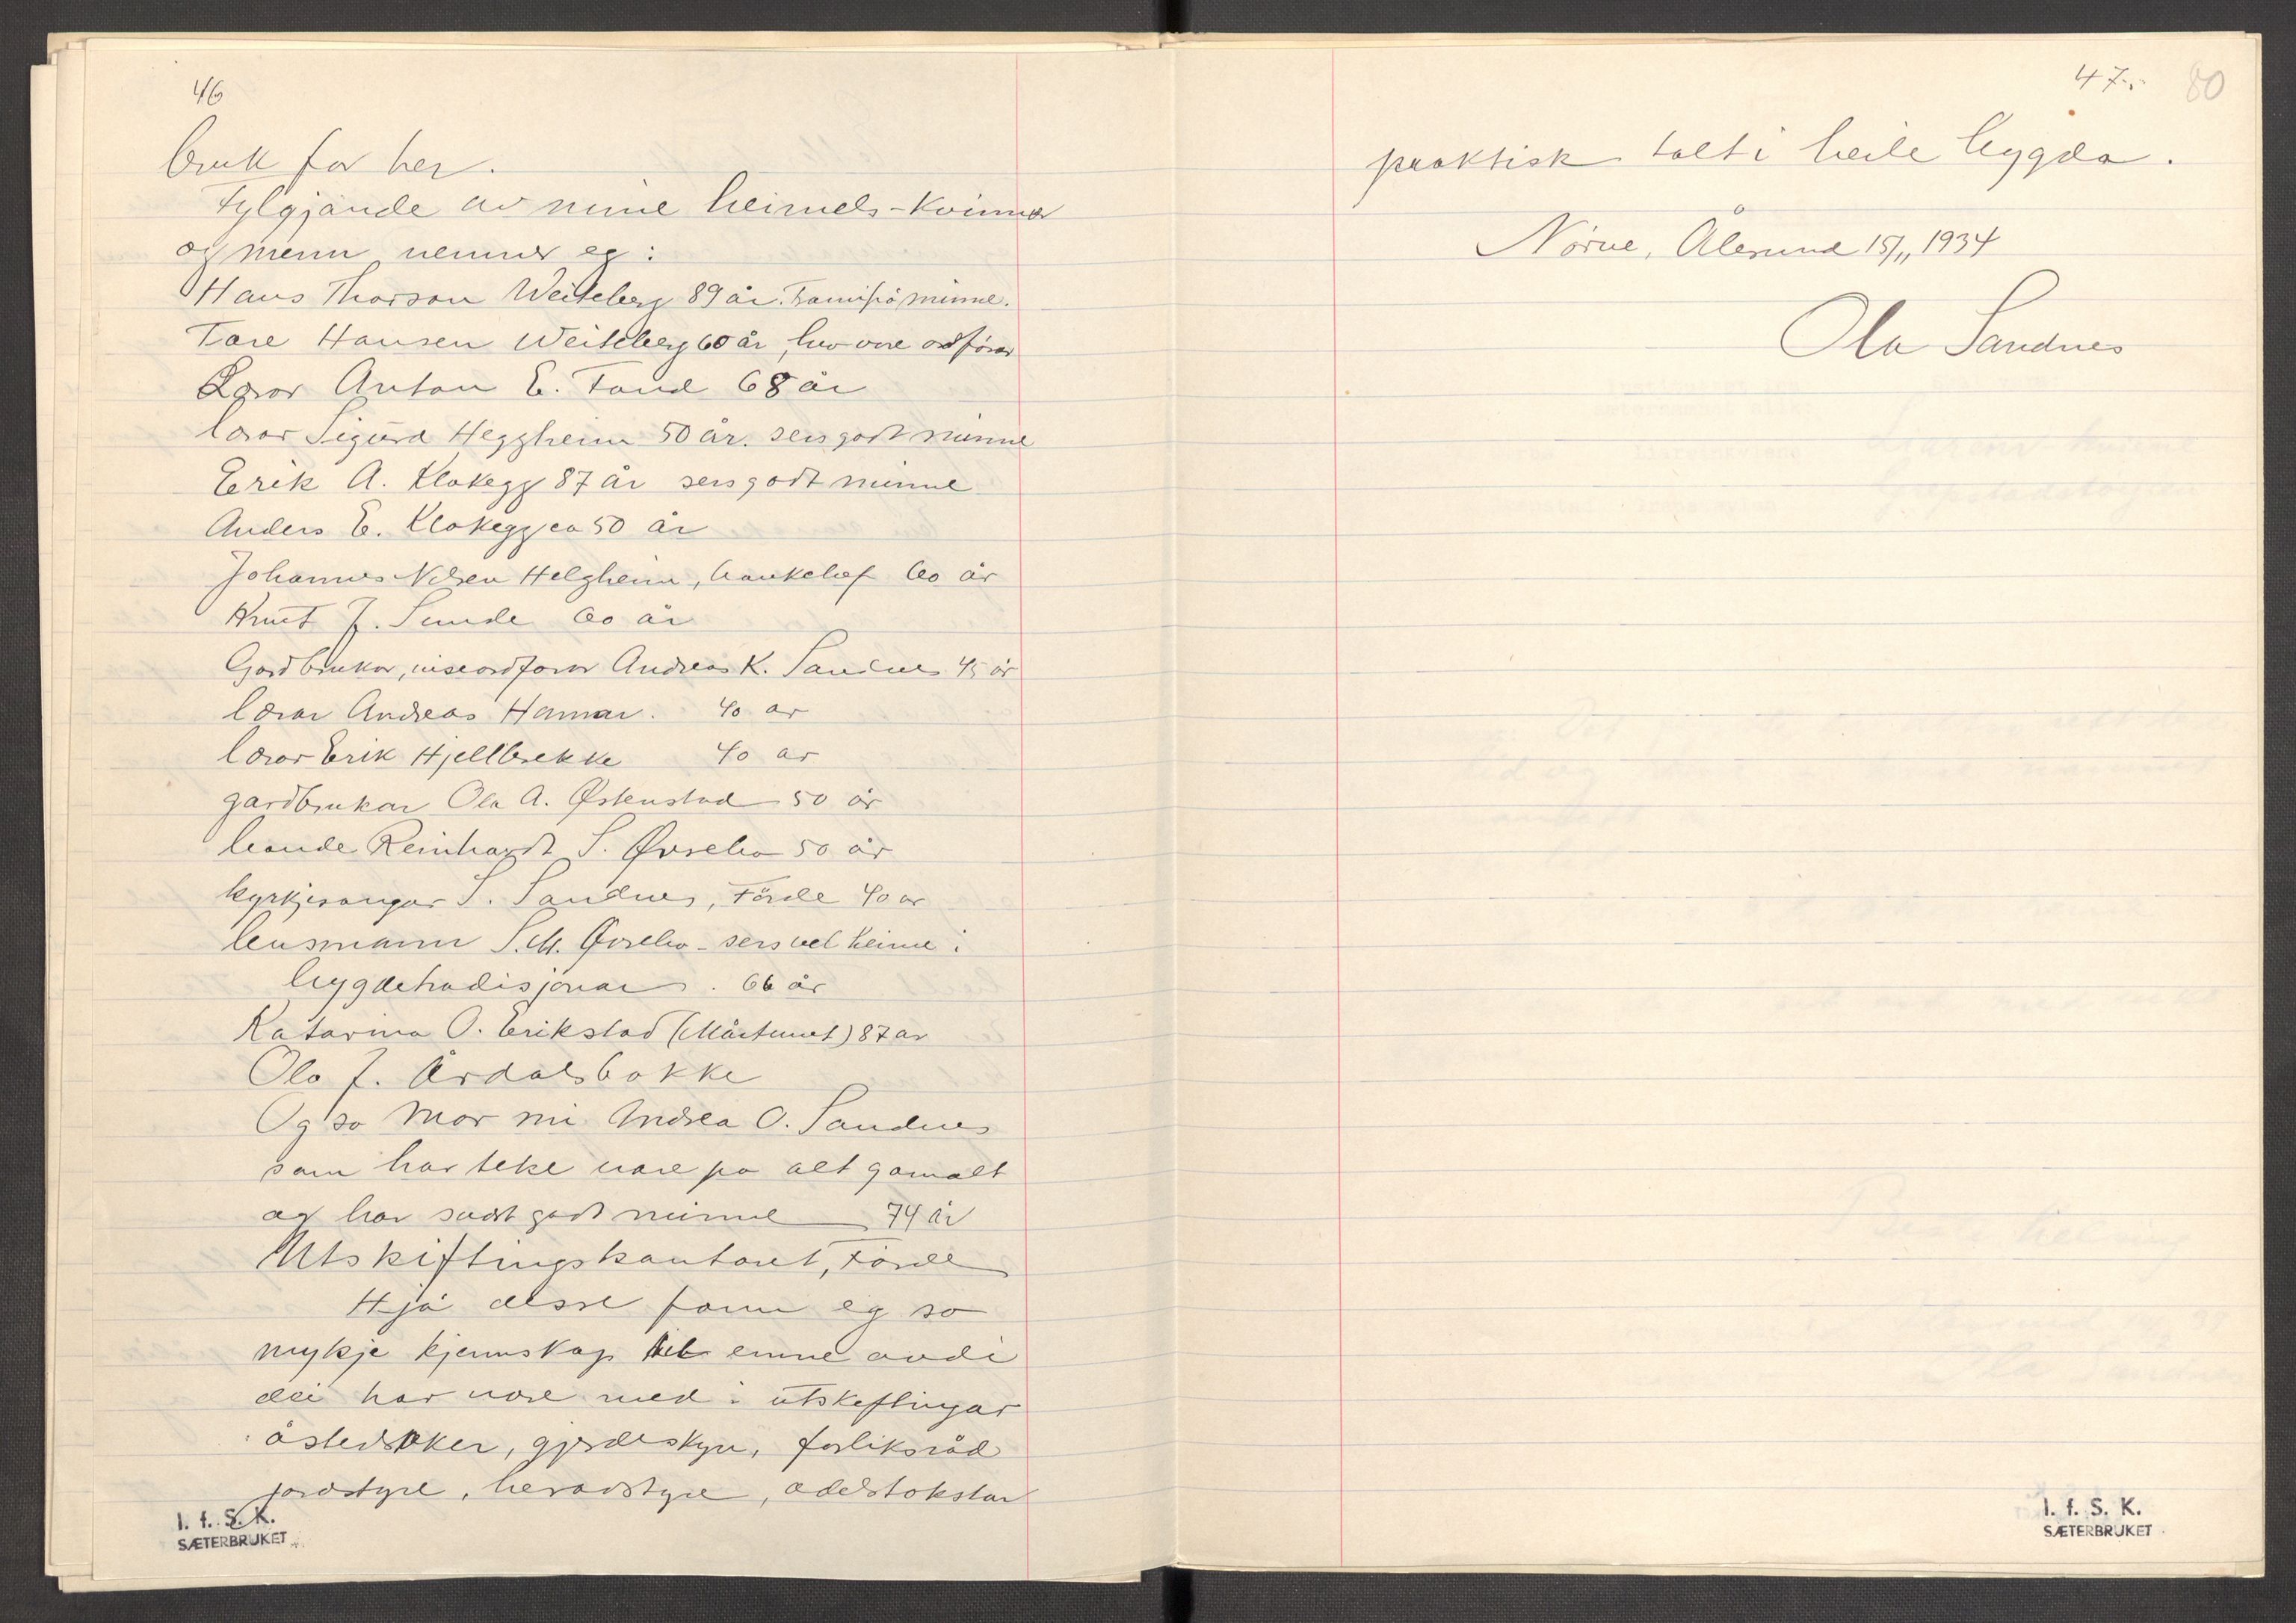 46
bruk for her.
Fylgjande av mine heimels-kvinner
og menn nemner eg:
Hans Thorson Weiteberg 89 år. Framifrå minne.
Tore Hansen Weiteberg 60 år, hev vore ordförar
Lærar Anton E. Fond 68 år
lærar Sigurd Heggheim 50 år. sers godt minne
Erik A. Klakegg 87 år sers godt minne
Anders E. Klakegg ca 50 år
Johannes Nilsen Helgheim, banksjef 60 år
Knut J. Sunde 60 år
Gardbrukar, viseordførar Andreas K. Sandnes 45 år
lærar Andreas Hamar. 40 år
lærar Erik Hjellbrekke 40 år
gardbrukar Ola A. Østenstad 50 år
bonde Reinhardt S. Øvrebø 50 år
kyrkjesongar S. Sandnes, Förde 40 år
lensmann S. M. Øvrebø - sers vel heime i
bygdetradisjonar. 66 år
Katarina O. Erikstad (Mårtunet) 87 år
Ola J. Årdalsbakke
Og so mor mi Andrea O. Sandnes
som har teke vare på alt gamalt
og har svært godt minne 74 år
Utskiftingskontoret, Förde
Hjå desse fann eg so
mykje kjennskap til emne avdi
dei har vore med i utskiftingar
åstedsaker, gjerdeskyn, forliksråd
jordstyre, heradstyre, odelstakstar
I. f. S. K.
SÆTERBRUKET
47.
80
praktisk talt i heile bygda.
Nörve, Ålesund 15/11 1934
Ola Sandnes
I. f. S. K.
SÆTERBRUKET